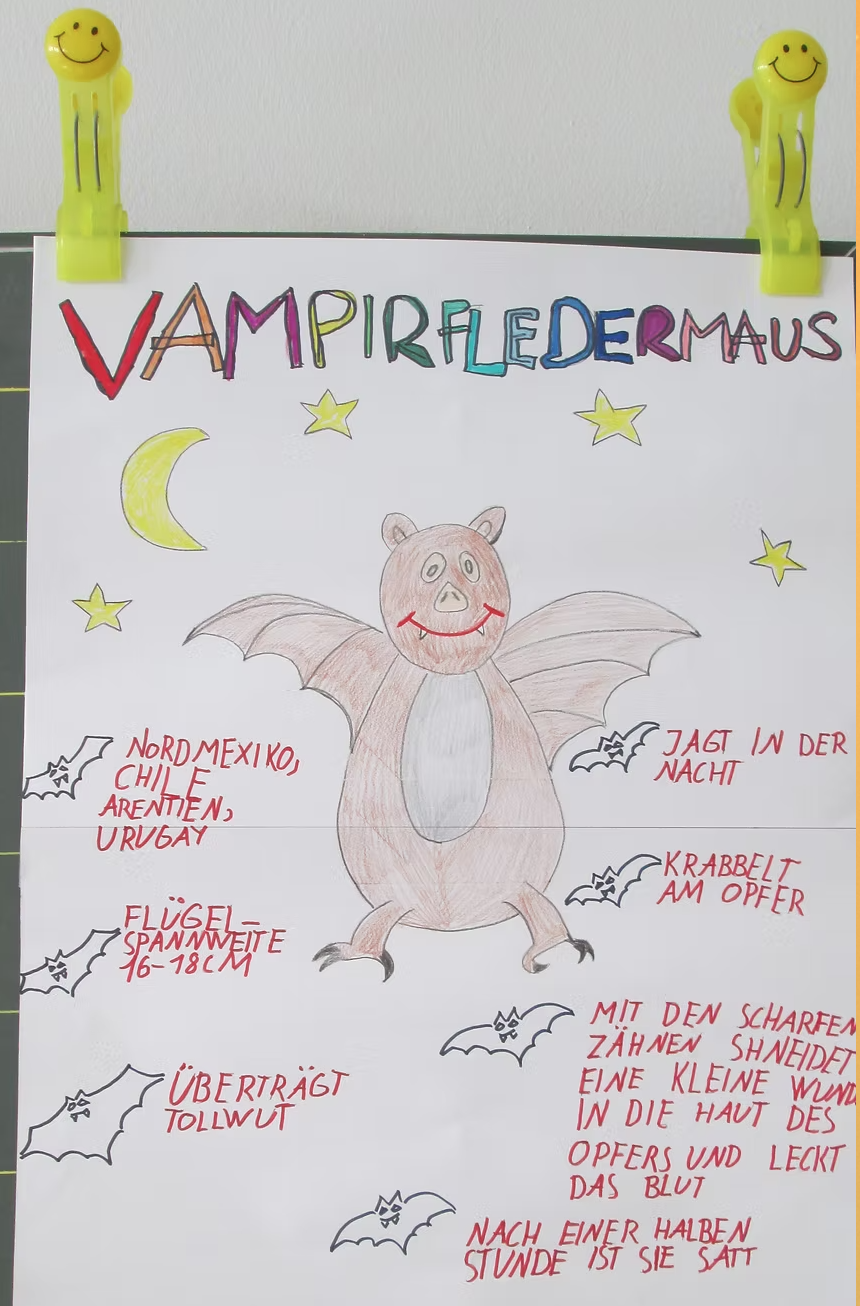 VAMPIRFLEDERMAUS
NORDMEXIKO,
CHILE
ARENTIEN,
URUGAY
FLÜGEL-
SPANNWEITE
16-18CM
ÜBERTRÄGT
TOLLWUT
JAGT IN DER
NACHT
KRABBELT
AM OPFER
MIT DEN SCHARFEN
ZÄHNEN SHNEIDET
EINE KLEINE WUND
IN DIE HAUT DES
OPFERS UND LECKT
DAS BLUT
NACH EINER HALBEN
STUNDE IST SIE SATT